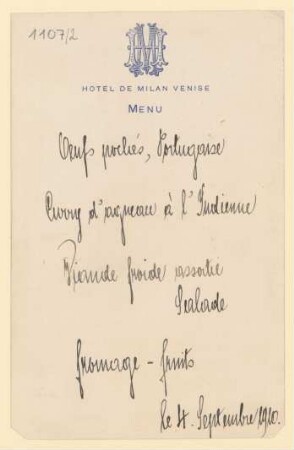 1107/2
HM
HOTEL DE MILAN VENISE
MENU
Oeufs pochés, Portugaise
Curry d'agneau à l'Indienne
Viande froide assortie
Salade
fromage - fruits
le 4. Septembre 1910.